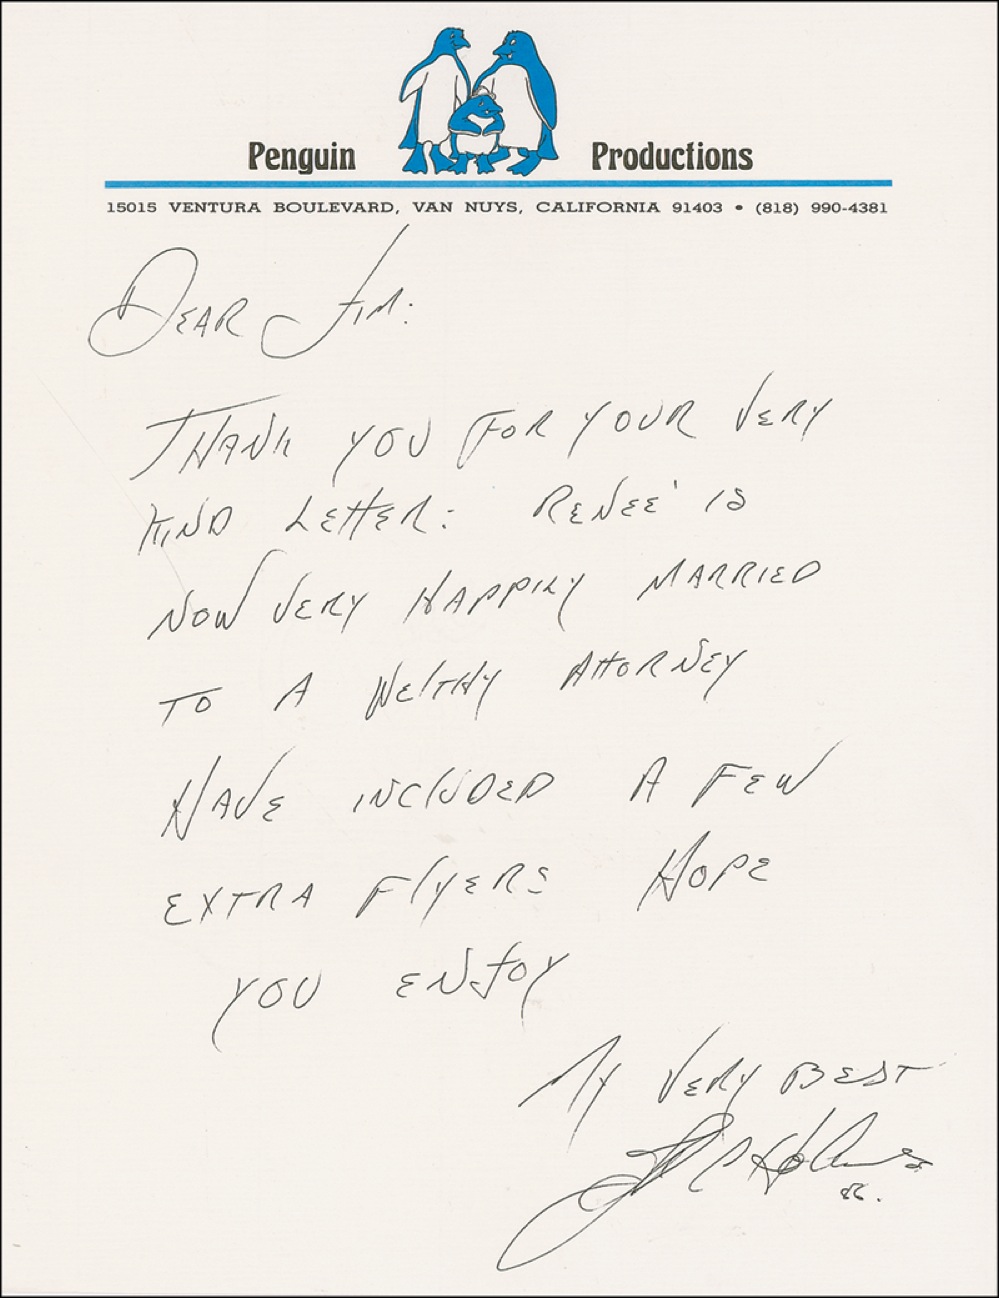 Penguin Productions
15015 VENTURA BOULEVARD, VAN NUYS, CALIFORNIA 91403 • (818) 990-4381
DEAR JIM:
THANK YOU FOR YOUR VERY
KIND LETTER: RENEE' IS
NOW VERY HAPPILY MARRIED
TO A WElTHY ATTORNEY
HAVE INCLUDED A FEW
EXTRA FlYERS HOPE
YOU ENJOY
MY VERY BEST
J C Holmes
86.